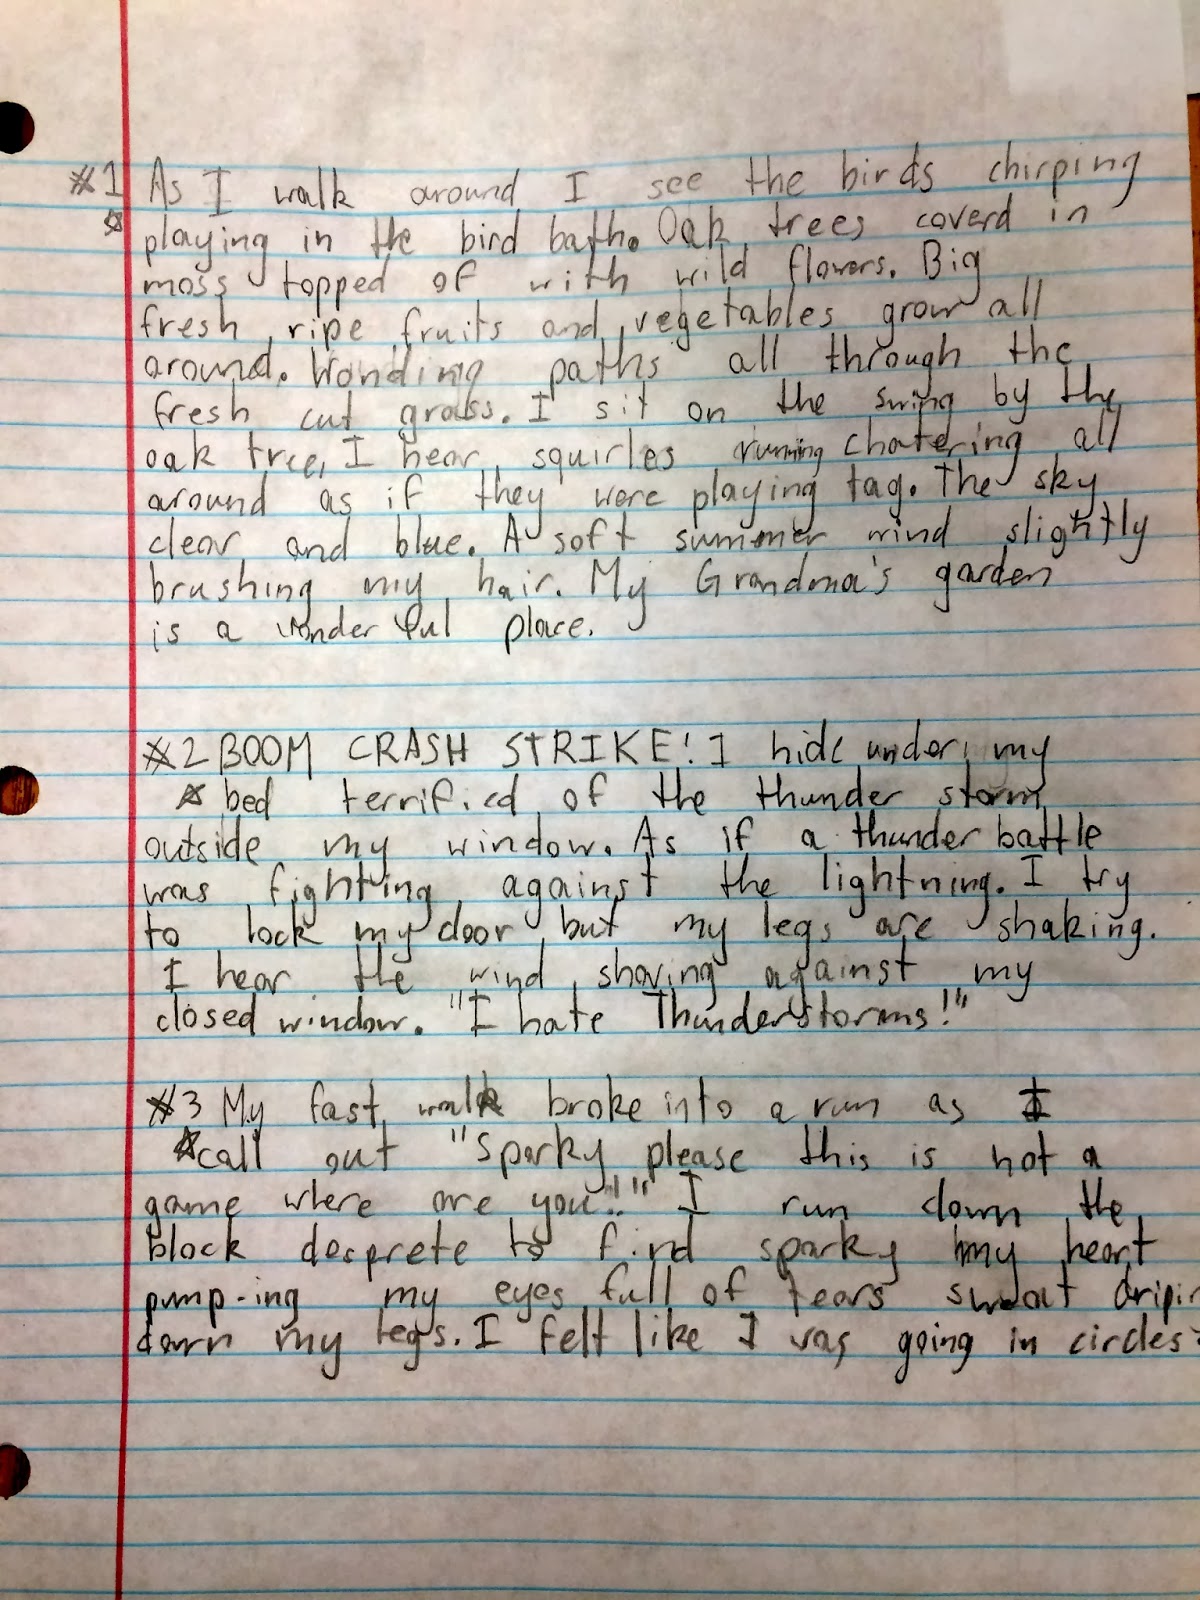 #1 As I walk around I see the birds chirping
playing in the bird bath. Oak trees coverd in
moss topped of with wild flowers. Big
fresh ripe fruits and vegetables grow all
around. Wonding paths all through the
fresh cut grass. I sit on the swing by the
oak tree, I hear squirles running chatering all
around as if they were playing tag. The sky
clear and blue. A soft summer wind slightly
brushing my hair. My Grandma's garden
is a wonderful place.
#2 BOOM CRASH STRIKE! I hide under my
bed terrified of the thunder storm
outside my window. As if a thunder battle
was fighting against the lightning. I try
to lock my door but my legs are shaking.
I hear the wind shoving against my
closed window. "I hate Thunderstorms!"
#3 My fast walk broke into a run as I
call out "Sparky please this is not a
game where are you!!" I run down the
block desprete to find sparky my heart
pump-ing my eyes full of tears sweat dripin
down my legs. I felt like I was going in circles